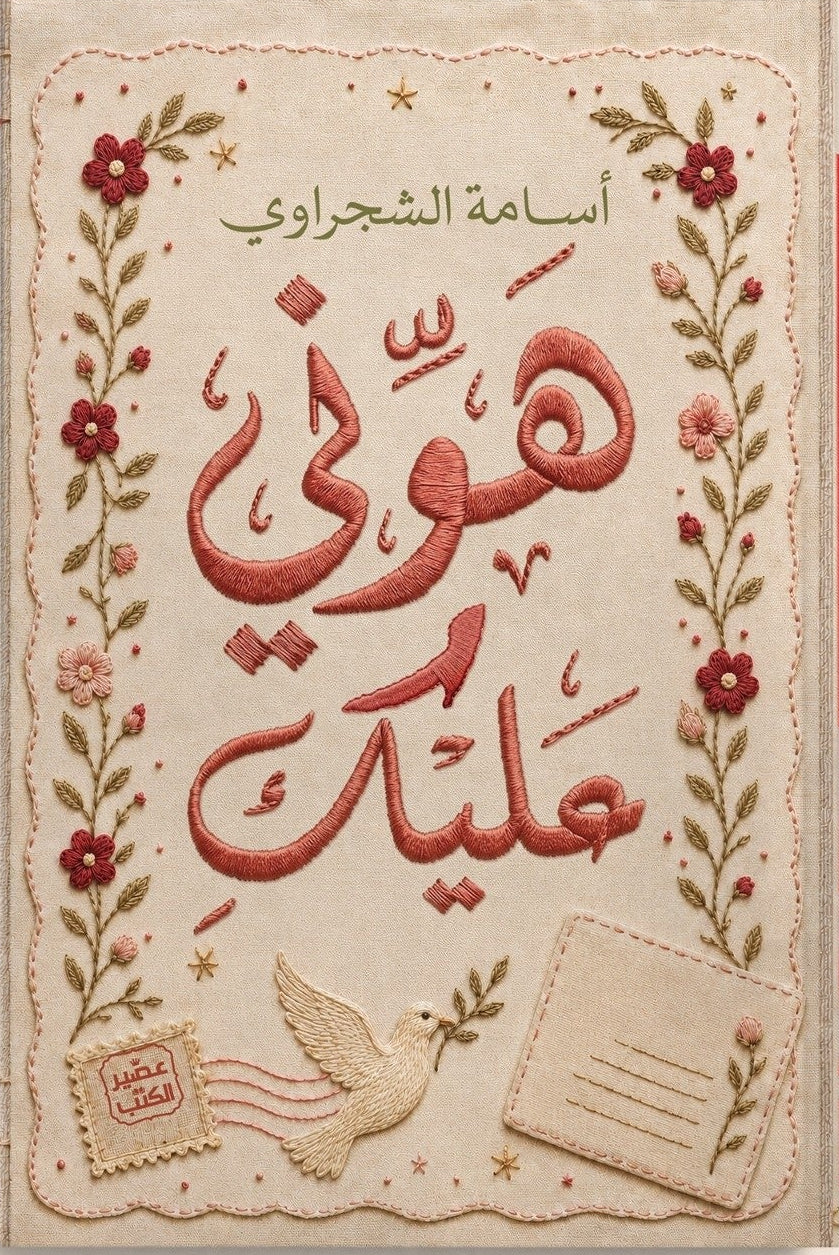 أسامة الشجراوي
هَوِّني
عَليْكِ
عصير
الكتب